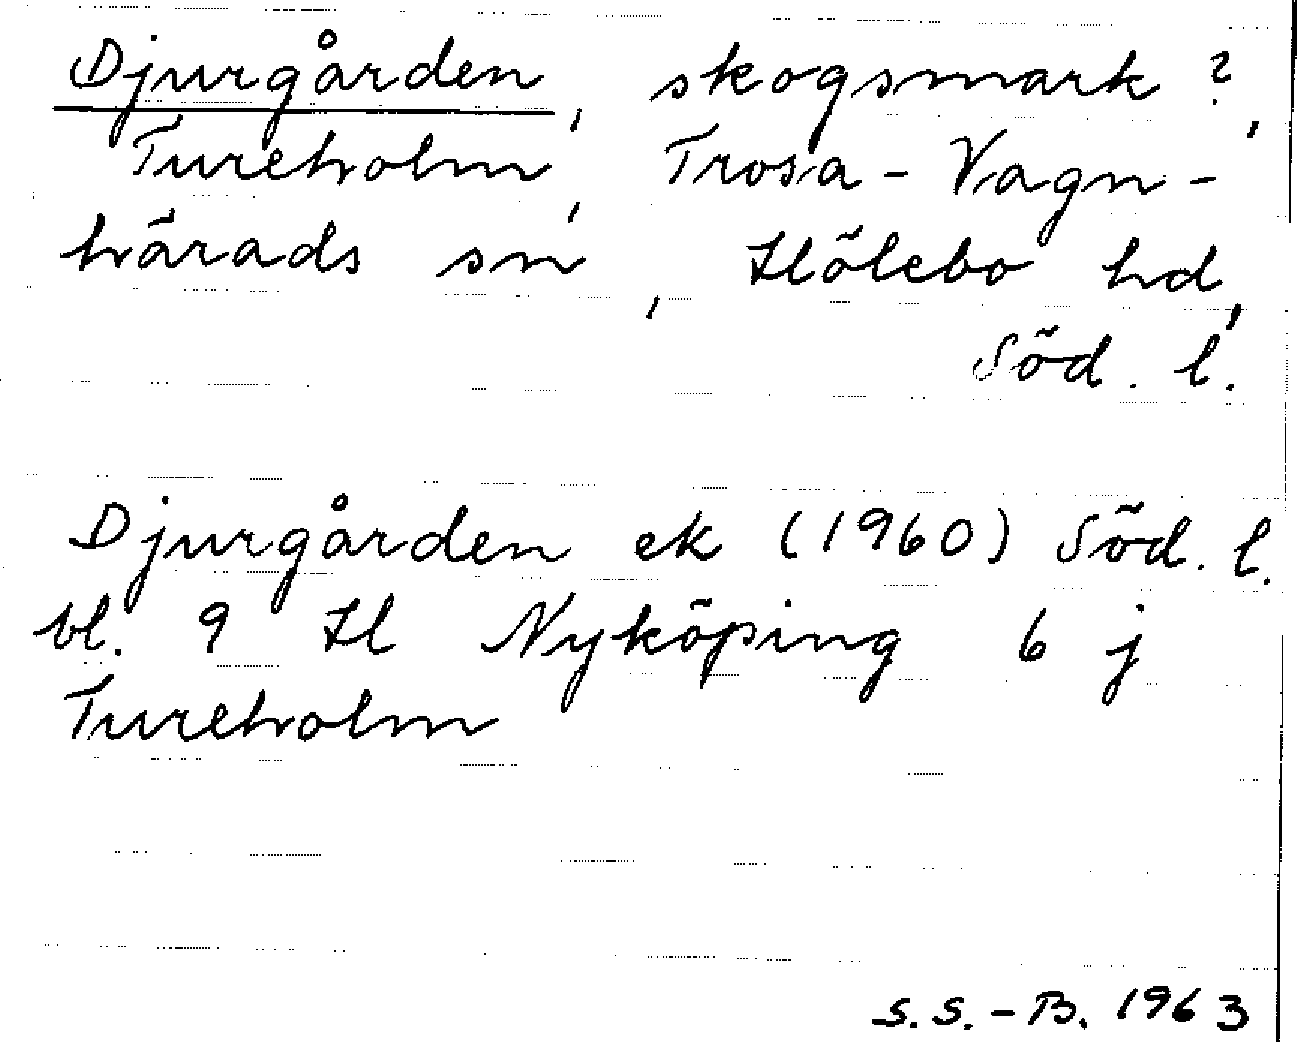 Djurgården, skogsmark?,
Tureholm, Trosa-Vagn-
härads sn, Hölebo hd,
Söd. l.
Djurgården ek (1960) Söd. l.
bl. 9 H Nyköping 6 j
Tureholm
S.S.-B. 1963